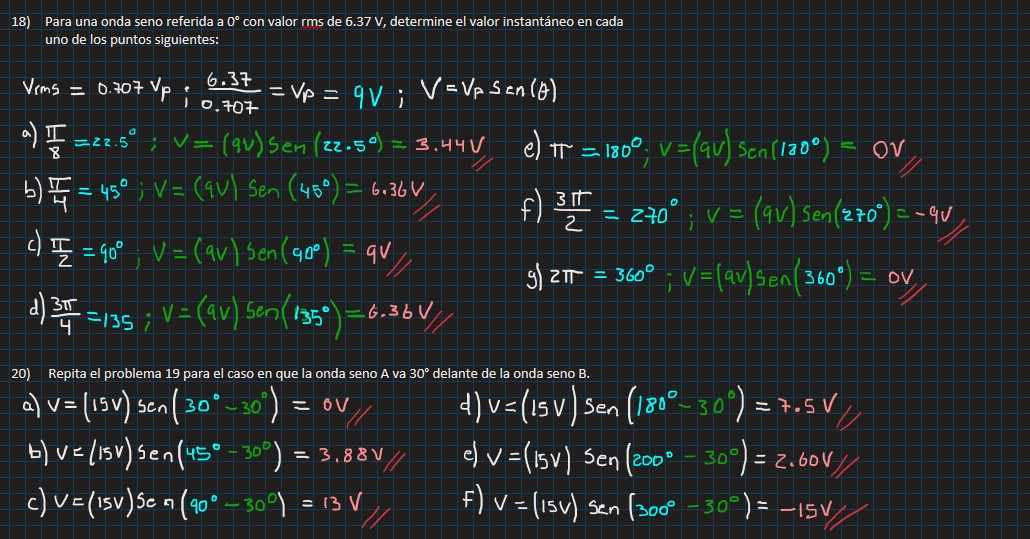 18) Para una onda seno referida a 0° con valor rms de 6.37 V, determine el valor instantáneo en cada
uno de los puntos siguientes:
Vrms = 0.707 Vp ; 6.37/0.707 = Vp = 9V ; V = Vp Sen(θ)
a) π/8 = 22.5° ; V = (9V) Sen(22.5°) = 3.44V
b) π/4 = 45° ; V = (9V) Sen (45°) = 6.36V
c) π/2 = 90° ; V = (9V) Sen(90°) = 9V
d) 3π/4 = 135 ; V = (9V) Sen(135°) = 6.36V
e) π = 180° ; V = (9V) Sen(180°) = 0V
f) 3π/2 = 270° ; V = (9V) Sen(270°) = -9V
g) 2π = 360° ; V = (9V) Sen(360°) = 0V
20) Repita el problema 19 para el caso en que la onda seno A va 30° delante de la onda seno B.
a) V = (15V) Sen(30° - 30°) = 0V
b) V = (15V) Sen(45° - 30°) = 3.88V
c) V = (15V) Sen(90° - 30°) = 13 V
d) V = (15V) Sen(180° - 30°) = 7.5V
e) V = (15V) Sen(200° - 30°) = 2.60V
F) V = (15V) Sen(300° - 30°) = -15V